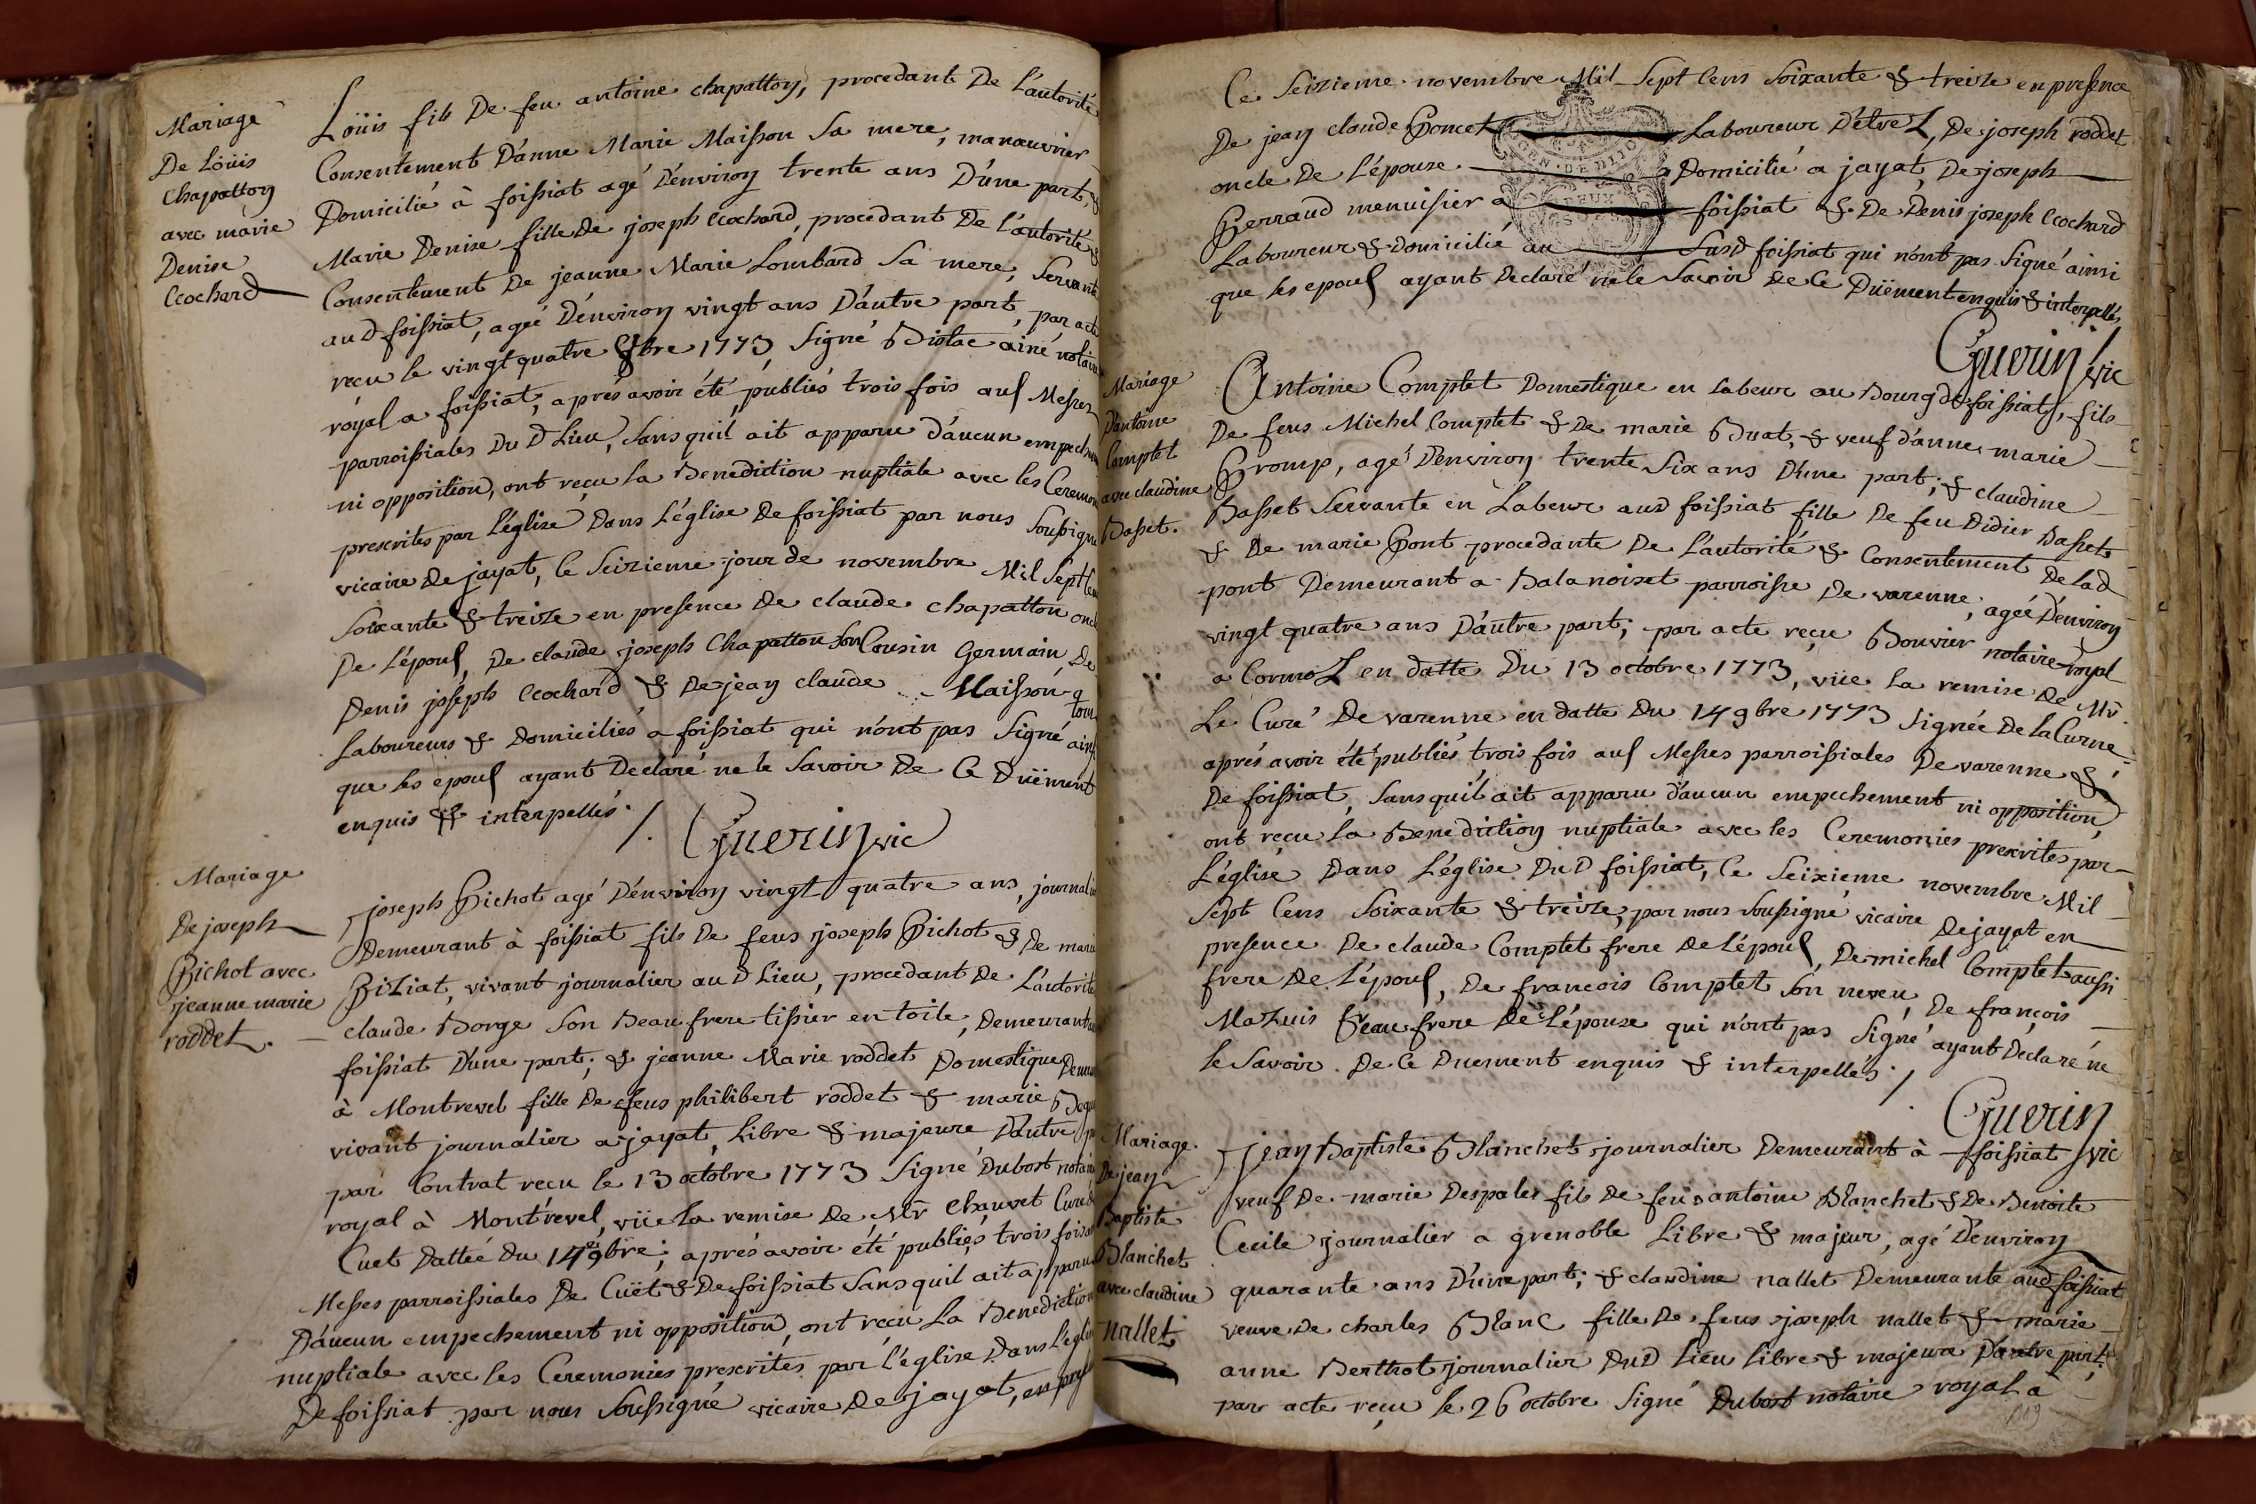 Mariage
De Löüis
Chapatton
avec marie
Denise
Ccochard
Löüis fils De feu antoine chapatton, procedant De L'autorité
Consentement D'anne Marie Maisson Sa mere, manouvrier
Domicilié à foissiat agé D'environ trente ans D'une part, &
Marie Denise fille De joseph Ccochard, procedant De L'autorité &
Consentement De jeanne Marie Lombard Sa mere, Servante
aud foissiat, ageé D'environ vingt ans D'autre part, par acte
reçu le vingt quatre 8bre 1773, Signé ainé notaire
royal a foissiat, après avoir été publiés trois fois aux Messes
parroissiales Du D Lieu, Sans qu'il ait apparu d'aucun empechem
ni opposition, ont reçu la Benediction nuptiale avec les Ceremon
prescrites par L'église Dans L'église De foissiat par nous Soussigné
vicaire De jayat, le Seizieme jour de novembre Mil Sept Cen
Soixante & treize en presence De claude chapatton oncle
De L'epoux, De claude joseph Chapatton Son Cousin Germain, De
Denis joseph Ccochard & De jean claude Maisson q
tous
Laboureurs & Domiciliés a foissiat qui n'ont pas Signé ainsi
que les epoux ayant Declaré ne le Savoir De Ce Duëment
enquis & interpellés ./.
Guerin vic
Mariage
De joseph
Pichot avec
jeanne marie
roddet.
joseph Pichot agé D'environ vingt quatre ans, journalie
Demeurant à foissiat fils De feus joseph Pichot & De marie
Biziat, vivant journalier au D Lieu, procedant De L'autorité
claude Borge Son Beau frere tissier en toile, Demeurant a
foissiat D'une part; & jeanne Marie roddet Domestique Demeu
à Montrevel fille De feus philibert roddet & marie
vivant journalier a jayat, Libre & majeure D'autre p
par Contrat reçu le 13 octobre 1773 Signé Dubost notaire
royal à Montrevel, vüe la remise De Mr Chauvet Curé
Cuet Dattée Du 14 9bre; après avoir été publiés trois fois a
Messes parroissiales De Cüet & De foissiat Sans quil ait apparu
D'aucun empechement ni opposition, ont reçu La Benediction
nuptiale avec les Ceremonies prescrites par L'église Dans L'eglise
De foissiat par nous Soussigné vicaire De jayat, en pres
Ce Seizieme novembre Mil Sept Cens Soixante & treize en presence
De jean claude Poncet Laboureur D'étrez, De joseph roddet
oncle De L'épouse Domicilié a jayat, De joseph
Perraud menuisier a foissiat & De Denis joseph Ccochard
Laboureur & Domicilié au Susd foissiat qui n'ont pas Signé ainsi
que les epoux ayant Declaré ne le Savoir De Ce Duëment enquis & interpellés
GEN. DE DIJON
DEUX
Guerin vic
Mariage
D'antoine
Comptet
avec claudine
Basset.
Antoine Comptet Domestique en Labeur au Bourg De foissiat, fils
De feus Michel Comptet & De marie Buat, & veuf d'anne marie
Promp, agé D'environ trente Six ans D'une part; & claudine
Basset Servante en Labeur aud foissiat fille De feu Didier Basset
& De marie Pont procedante De L'autorité & Consentement De lad
pont Demeurant a Balanoiset parroisse De varenne, ageé D'environ
vingt quatre ans D'autre part; par acte reçu Bouvier notaire royal
a Cormoz en datte Du 13 octobre 1773, vüe la remise De Mr
Le Curé De varenne en datte Du 14 9bre 1773 Signée De la Curne
après avoir été publiés trois fois aux Messes parroissiales De varenne &
De foissiat, Sans qu'il ait apparu d'aucun empechement ni opposition,
ont reçu la Benediction nuptiale avec les Ceremonies prescrites par
L'église Dans L'église Du D foissiat, Ce Seizieme novembre Mil
Sept Cens Soixante & treize, par nous Soussigné vicaire De jayat en
presence De claude Comptet frere De L'époux, De michel Comptet aussi
frere De L'époux, De francois Comptet Son neveu, De françois
Mazuis Beau frere De L'épouse qui n'ont pas Signé ayant Declaré ne
le Savoir De Ce Duement enquis & interpellés ./.
Guerin
vic
Mariage
De jean
Baptiste
Blanchet
avec claudine
Nallet
Jean Baptiste Blanchet journalier Demeurant à foissiat
veuf De marie Despales fils De feus antoine Blanchet & De Benoite
Cecile journalier a grenoble Libre & majeur, agé D'environ
quarante ans D'une part; & claudine nallet Demeurante aud foissiat
veuve De charles Blanc fille De feus joseph nallet & marie
anne Berthot journalier Du D Lieu Libre & majeure D'autre part;
par acte reçu le 26 octobre Signé Dubost notaire royal a